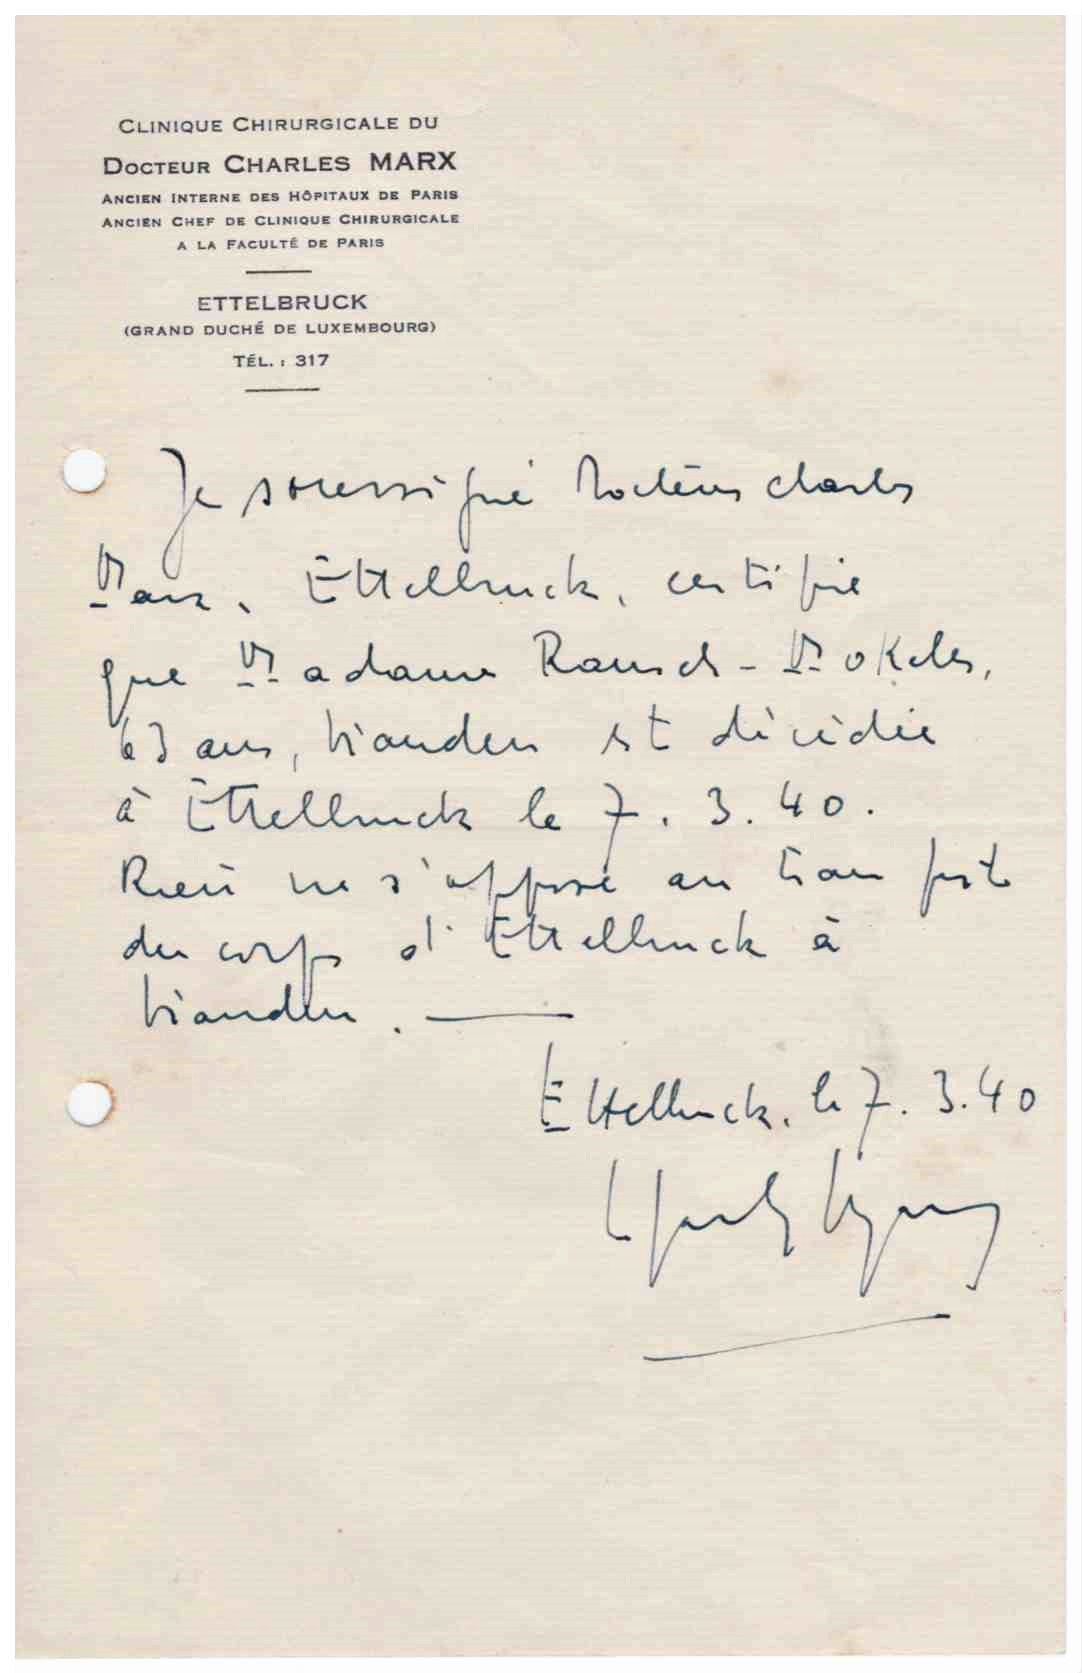 CLINIQUE CHIRURGICALE DU
DOCTEUR CHARLES MARX
ANCIEN INTERNE DES HÔPITAUX DE PARIS
ANCIEN CHEF DE CLINIQUE CHIRURGICALE
A LA FACULTÉ DE PARIS
ETTELBRUCK
(GRAND DUCHÉ DE LUXEMBOURG)
TÉL. : 317
Je soussigné Docteur Charles
Marx, Ettelbruck, certifie
que Madame Rausch - Mokels,
63 ans, Vianden est décédée
à Ettelbruck le 7. 3. 40.
Rien ne s'oppose au transport
du corps d'Ettelbruck à
Vianden.
Ettelbruck, le 7. 3. 40